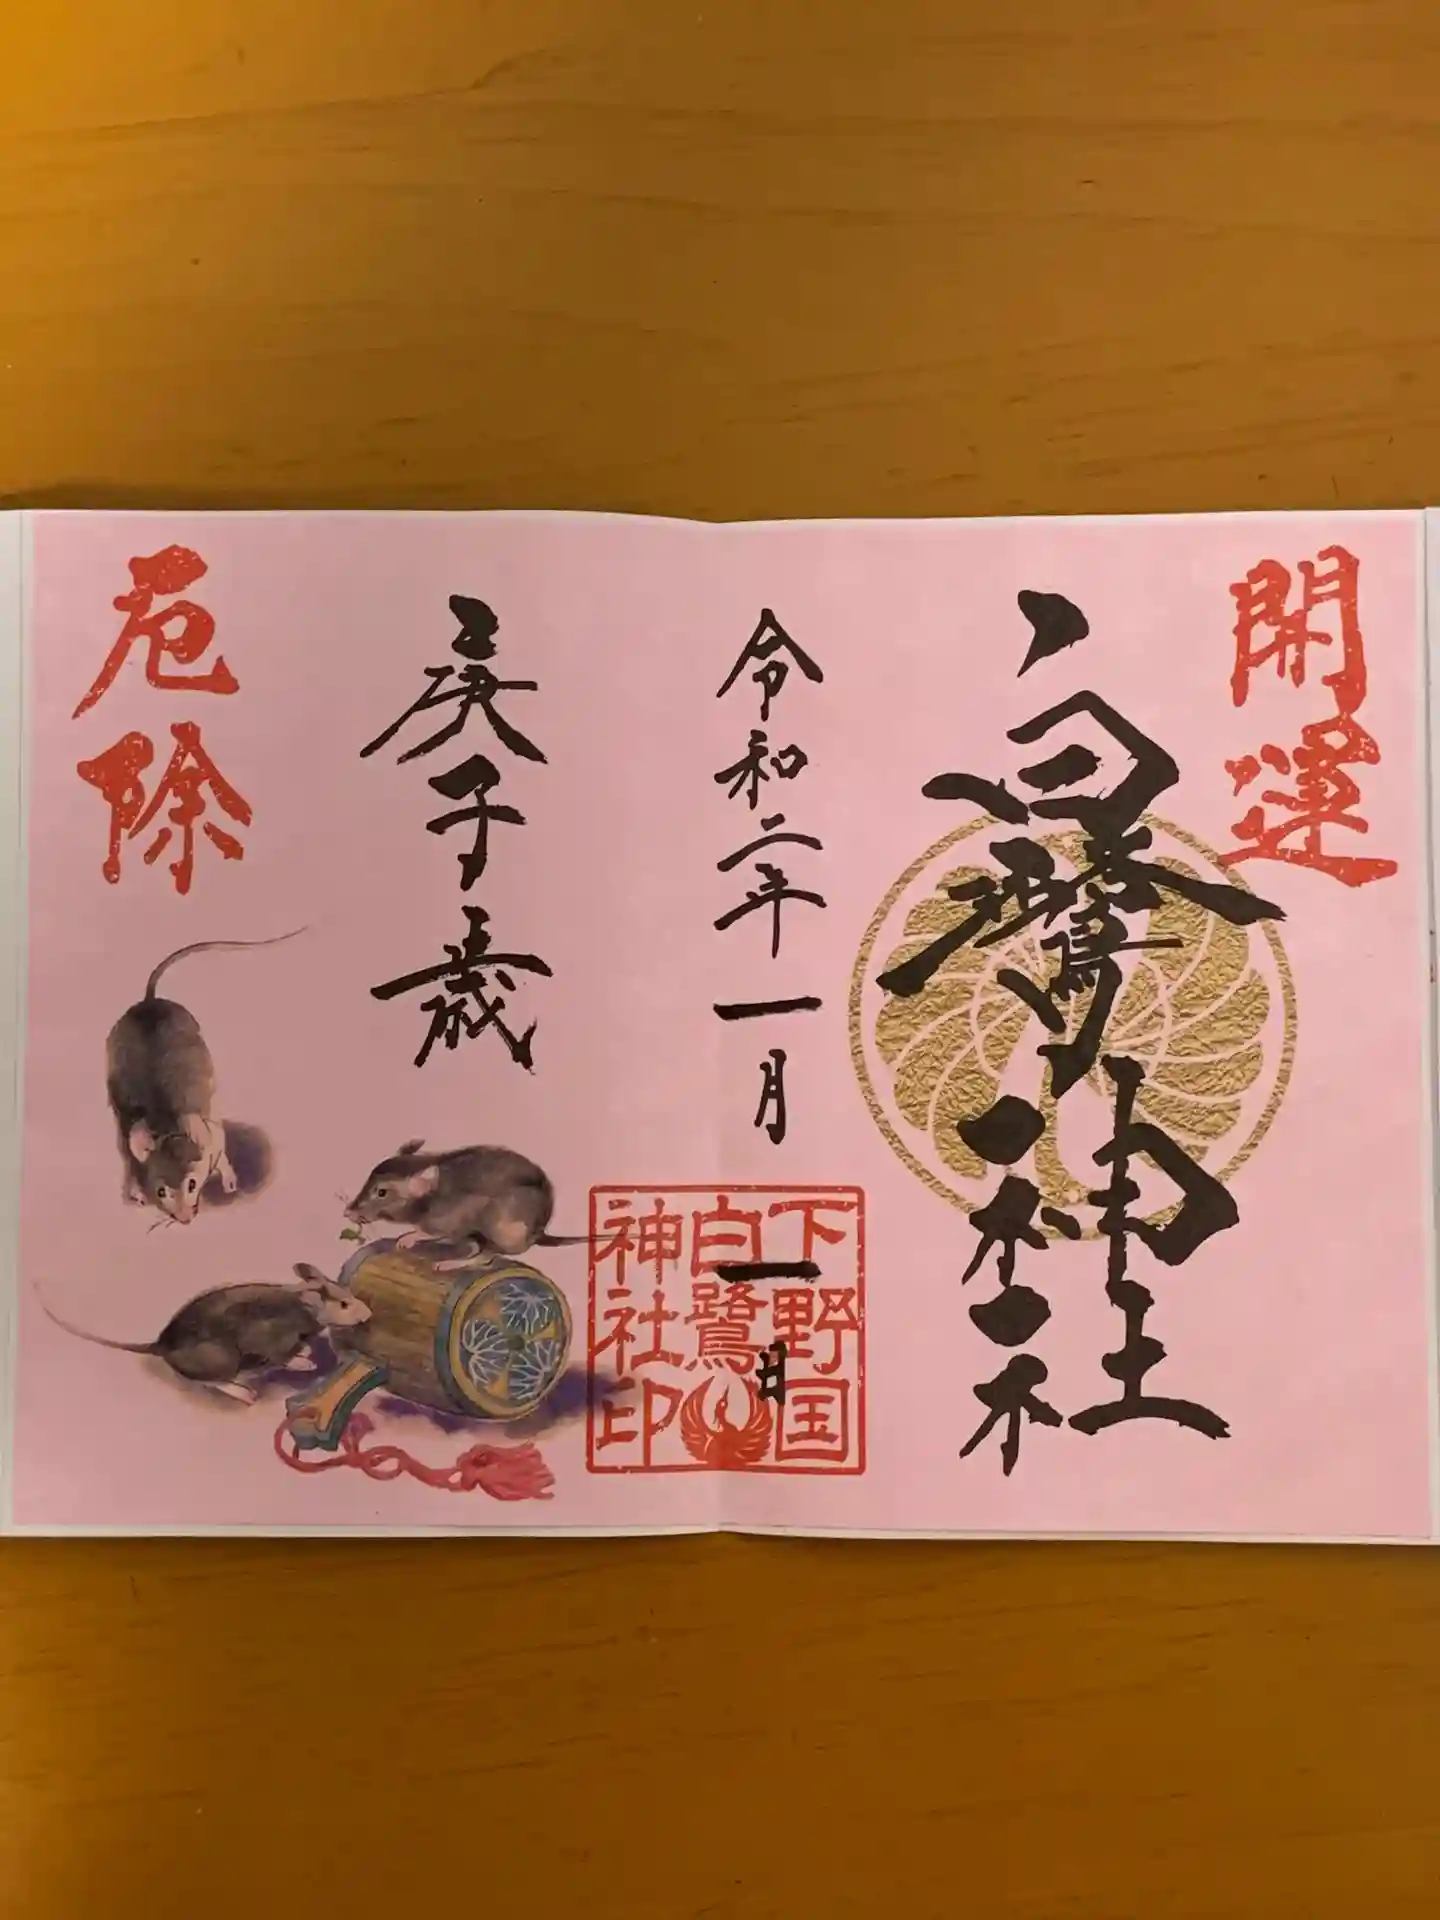 開運
白鷺神社
令和二年一月一日
下野国
白鷺
神社印
庚子歳
厄除